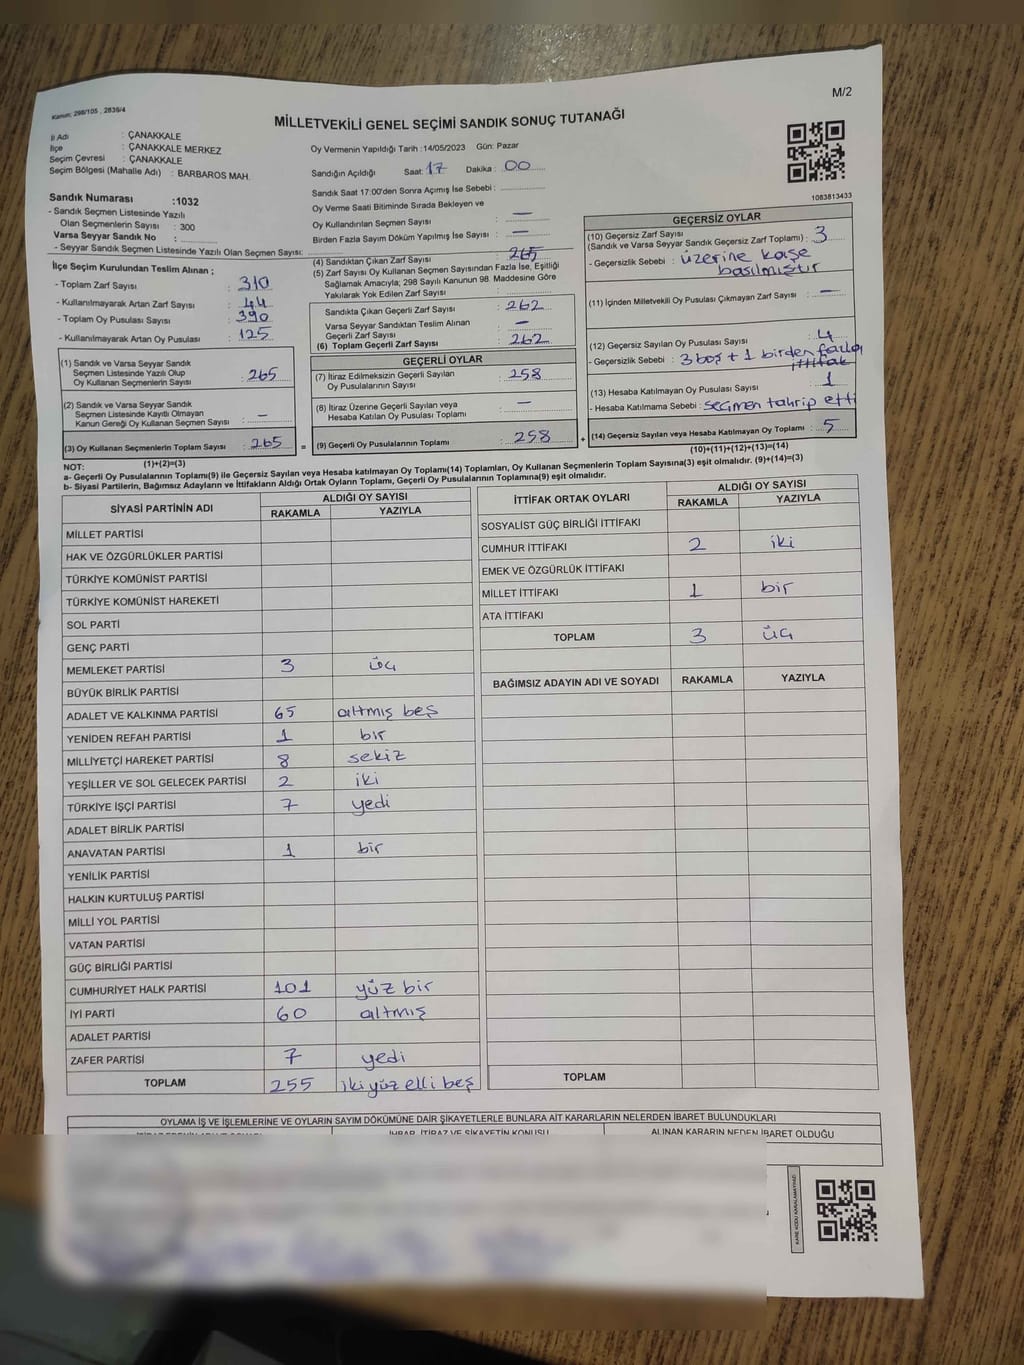 Kanun; 298/105 , 2839/4
M/2
MİLLETVEKİLİ GENEL SEÇİMİ SANDIK SONUÇ TUTANAĞI
İl Adı : ÇANAKKALE
İlçe : ÇANAKKALE MERKEZ
Seçim Çevresi : ÇANAKKALE
Seçim Bölgesi (Mahalle Adı) : BARBAROS MAH.
Oy Vermenin Yapıldığı Tarih : 14/05/2023 Gün: Pazar
Sandığın Açıldığı Saat: 17 Dakika : 00
Sandık Saat 17:00'den Sonra Açımış İse Sebebi :
Oy Verme Saati Bitiminde Sırada Bekleyen ve
Oy Kullandırılan Seçmen Sayısı : —
Birden Fazla Sayım Döküm Yapılmış İse Sayısı : —
1083813433
Sandık Numarası :1032
- Sandık Seçmen Listesinde Yazılı
Olan Seçmenlerin Sayısı : 300
Varsa Seyyar Sandık No :
- Seyyar Sandık Seçmen Listesinde Yazılı Olan Seçmen Sayısı:
İlçe Seçim Kurulundan Teslim Alınan ;
- Toplam Zarf Sayısı : 310
- Kullanılmayarak Artan Zarf Sayısı : 44
- Toplam Oy Pusulası Sayısı : 390
- Kullanılmayarak Artan Oy Pusulası : 125
(1) Sandık ve Varsa Seyyar Sandık
Seçmen Listesinde Yazılı Olup
Oy Kullanan Seçmenlerin Sayısı : 265
(2) Sandık ve Varsa Seyyar Sandık
Seçmen Listesinde Kayıtlı Olmayan
Kanun Gereği Oy Kullanan Seçmen Sayısı : —
(3) Oy Kullanan Seçmenlerin Toplam Sayısı : 265 =
(1)+(2)=(3)
(4) Sandıktan Çıkan Zarf Sayısı : 265
(5) Zarf Sayısı Oy Kullanan Seçmen Sayısından Fazla İse, Eşitliği
Sağlamak Amacıyla; 298 Sayılı Kanunun 98. Maddesine Göre
Yakılarak Yok Edilen Zarf Sayısı :
Sandıkta Çıkan Geçerli Zarf Sayısı : 262
Varsa Seyyar Sandıktan Teslim Alınan
Geçerli Zarf Sayısı : —
(6) Toplam Geçerli Zarf Sayısı : 262
GEÇERLİ OYLAR
(7) İtiraz Edilmeksizin Geçerli Sayılan
Oy Pusulalarının Sayısı : 258
(8) İtiraz Üzerine Geçerli Sayılan veya
Hesaba Katılan Oy Pusulası Toplamı : —
(9) Geçerli Oy Pusulalarının Toplamı : 258 +
GEÇERSİZ OYLAR
(10) Geçersiz Zarf Sayısı
(Sandık ve Varsa Seyyar Sandık Geçersiz Zarf Toplamı) : 3
- Geçersizlik Sebebi : üzerine kaşe
basılmıştır
(11) İçinden Milletvekili Oy Pusulası Çıkmayan Zarf Sayısı : —
(12) Geçersiz Sayılan Oy Pusulası Sayısı : 4
- Geçersizlik Sebebi : 3 boş + 1 birden fazla
ittifak
(13) Hesaba Katılmayan Oy Pusulası Sayısı : 1
- Hesaba Katılmama Sebebi : seçmen tahrip etti
(14) Geçersiz Sayılan veya Hesaba Katılmayan Oy Toplamı : 5
(10)+(11)+(12)+(13)=(14)
NOT:
a- Geçerli Oy Pusulalarının Toplamı(9) ile Geçersiz Sayılan veya Hesaba katılmayan Oy Toplamı(14) Toplamları, Oy Kullanan Seçmenlerin Toplam Sayısına(3) eşit olmalıdır. (9)+(14)=(3)
b- Siyasi Partilerin, Bağımsız Adayların ve İttifakların Aldığı Ortak Oyların Toplamı, Geçerli Oy Pusulalarının Toplamına(9) eşit olmalıdır.
SİYASİ PARTİNİN ADI ALDIĞI OY SAYISI
RAKAMLA YAZIYLA
MİLLET PARTİSİ
HAK VE ÖZGÜRLÜKLER PARTİSİ
TÜRKİYE KOMÜNİST PARTİSİ
TÜRKİYE KOMÜNİST HAREKETİ
SOL PARTİ
GENÇ PARTİ
MEMLEKET PARTİSİ 3 üç
BÜYÜK BİRLİK PARTİSİ
ADALET VE KALKINMA PARTİSİ 65 altmış beş
YENİDEN REFAH PARTİSİ 1 bir
MİLLİYETÇİ HAREKET PARTİSİ 8 sekiz
YEŞİLLER VE SOL GELECEK PARTİSİ 2 iki
TÜRKİYE İŞÇİ PARTİSİ 7 yedi
ADALET BİRLİK PARTİSİ
ANAVATAN PARTİSİ 1 bir
YENİLİK PARTİSİ
HALKIN KURTULUŞ PARTİSİ
MİLLİ YOL PARTİSİ
VATAN PARTİSİ
GÜÇ BİRLİĞİ PARTİSİ
CUMHURİYET HALK PARTİSİ 101 yüz bir
İYİ PARTİ 60 altmış
ADALET PARTİSİ
ZAFER PARTİSİ 7 yedi
TOPLAM 255 iki yüz elli beş
İTTİFAK ORTAK OYLARI ALDIĞI OY SAYISI
RAKAMLA YAZIYLA
SOSYALİST GÜÇ BİRLİĞİ İTTİFAKI
CUMHUR İTTİFAKI 2 iki
EMEK VE ÖZGÜRLÜK İTTİFAKI
MİLLET İTTİFAKI 1 bir
ATA İTTİFAKI
TOPLAM 3 üç
BAĞIMSIZ ADAYIN ADI VE SOYADI RAKAMLA YAZIYLA
TOPLAM
OYLAMA İŞ VE İŞLEMLERİNE VE OYLARIN SAYIM DÖKÜMÜNE DAİR ŞİKAYETLERLE BUNLARA AİT KARARLARIN NELERDEN İBARET BULUNDUKLARI
İHBAR, İTİRAZ VE ŞİKAYETİN KONUSU ALINAN KARARIN NEDEN İBARET OLDUĞU
KARE KODU KARALAMAYINIZ!